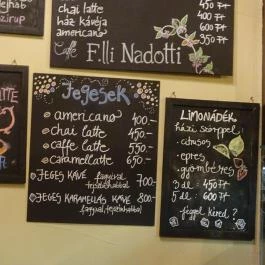 chai latte
ház kávéja
americano
450 Ft
600 Ft
350 Ft
Caffe F.lli Nadotti
szirup
Jegesek
americano 400.-
chai latte 450.-
caffe latte 550.-
caramellatte 650.-
JEGES KÁVÉ fagyival, tejszínhabbal 700.-
JEGES KARAMELLÁS KÁVÉ 800.-
fagyival, tejszínhabbal
LIMONÁDÉK
házi szörppel:
citrusos
epres
gyömbéres
3 dl: 450 Ft
5 dl: 600 Ft
jéggel kéred?